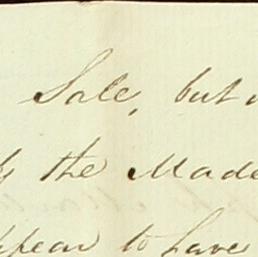 Sale, but
the Made
ppear to have